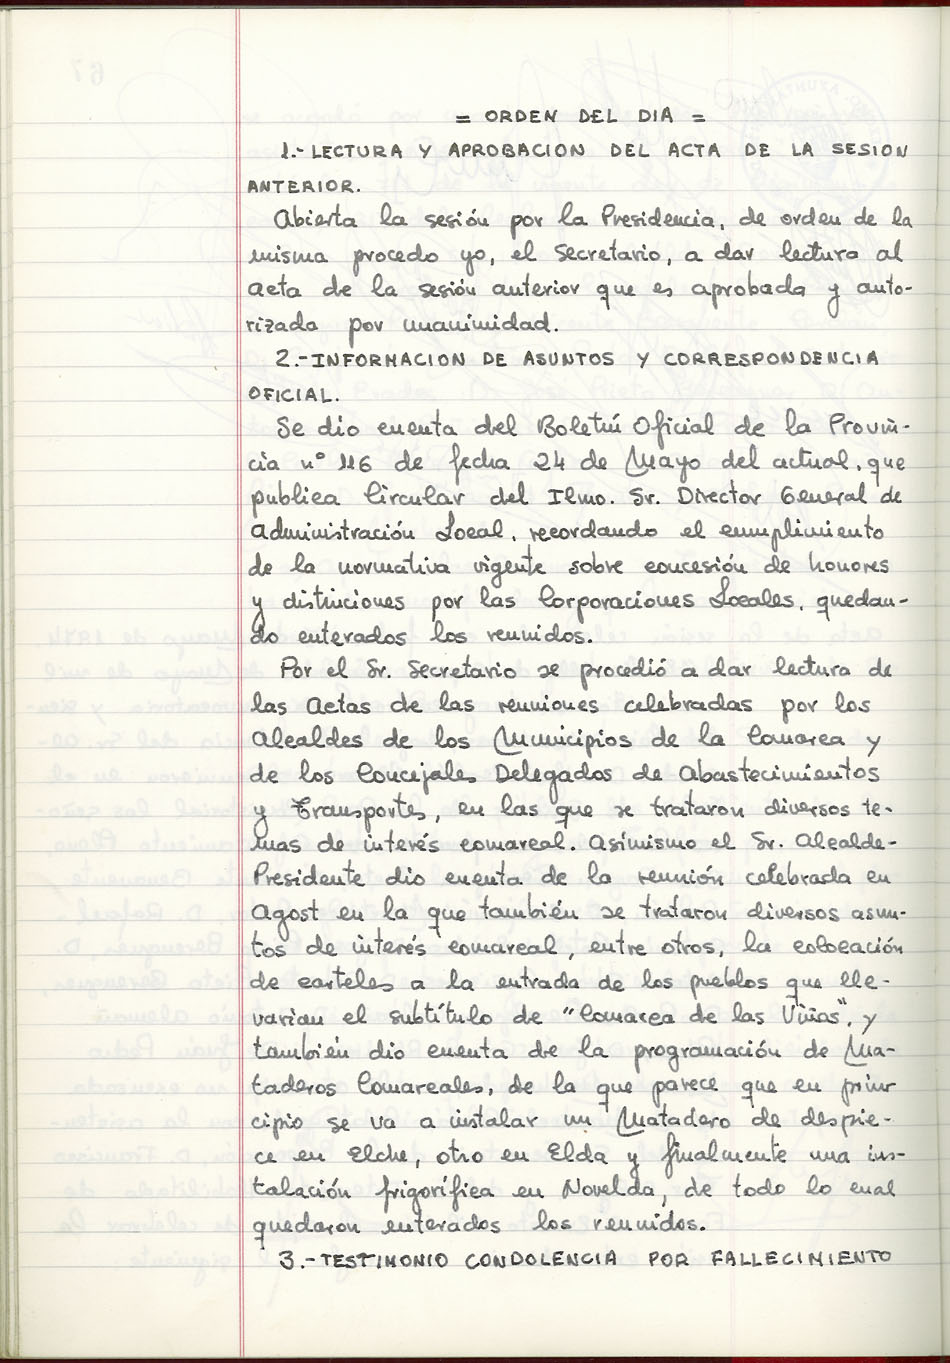 = ORDEN DEL DIA =
1.- LECTURA Y APROBACION DEL ACTA DE LA SESION
ANTERIOR.
Abierta la sesión por la Presidencia, de orden de la
misma procedo yo, el Secretario, a dar lectura al
acta de la sesión anterior que es aprobada y auto-
rizada por unanimidad.
2.- INFORMACION DE ASUNTOS Y CORRESPONDENCIA
OFICIAL.
Se dio cuenta del Boletín Oficial de la Provin-
cia nº 116 de fecha 24 de Mayo del actual, que
publica Circular del Ilmo. Sr. Director General de
Administración Local, recordando el cumplimiento
de la normativa vigente sobre concesión de honores
y distinciones por las Corporaciones Locales, quedan-
do enterados los reunidos.
Por el Sr. Secretario se procedió a dar lectura de
las Actas de las reuniones celebradas por los
Alcaldes de los Municipios de la Comarca y
de los Concejales Delegados de Abastecimientos
y Transporte, en las que se trataron diversos te-
mas de interés comarcal. Asimismo el Sr. Alcalde-
Presidente dio cuenta de la reunión celebrada en
Agost en la que también se trataron diversos asun-
tos de interés comarcal, entre otros, la colocación
de carteles a la entrada de los pueblos que lle-
varian el subtítulo de "Comarca de las Viñas", y
también dio cuenta de la programación de Ma-
taderos Comarcales, de la que parece que en prin-
cipio se va a instalar un Matadero de despie-
ce en Elche, otro en Elda y finalmente una ins-
talación frigorífica en Novelda, de todo lo cual
quedaron enterados los reunidos.
3.- TESTIMONIO CONDOLENCIA POR FALLECIMIENTO